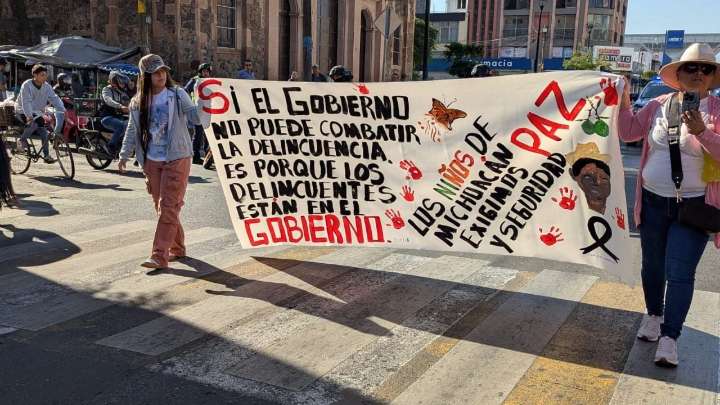 SI EL GOBIERNO
NO PUEDE COMBATIR
LA DELINCUENCIA,
ES PORQUE LOS
DELINCUENTES
ESTÁN EN EL
GOBIERNO.
LOS NIÑOS DE
MICHUACÁN
EXIGIMOS PAZ
Y SEGURIDAD
macia